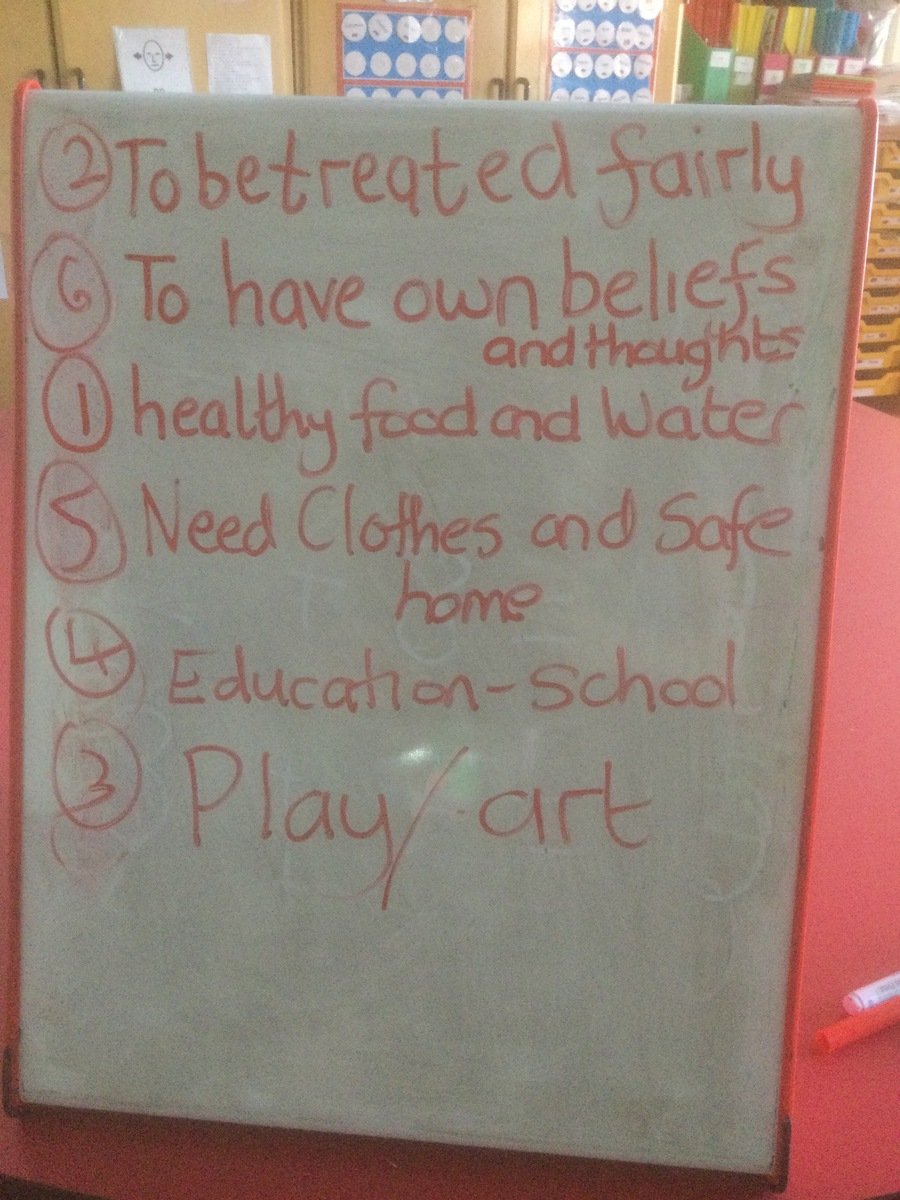 2 To be treated fairly
6 To have own beliefs
and thoughts
1 healthy food and Water
5 Need Clothes and Safe
home
4 Education - School
3 Play / art